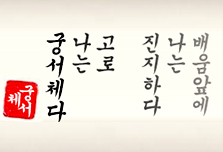 배움앞에
나는
진지하다
고로
나는
궁서체다
궁서체